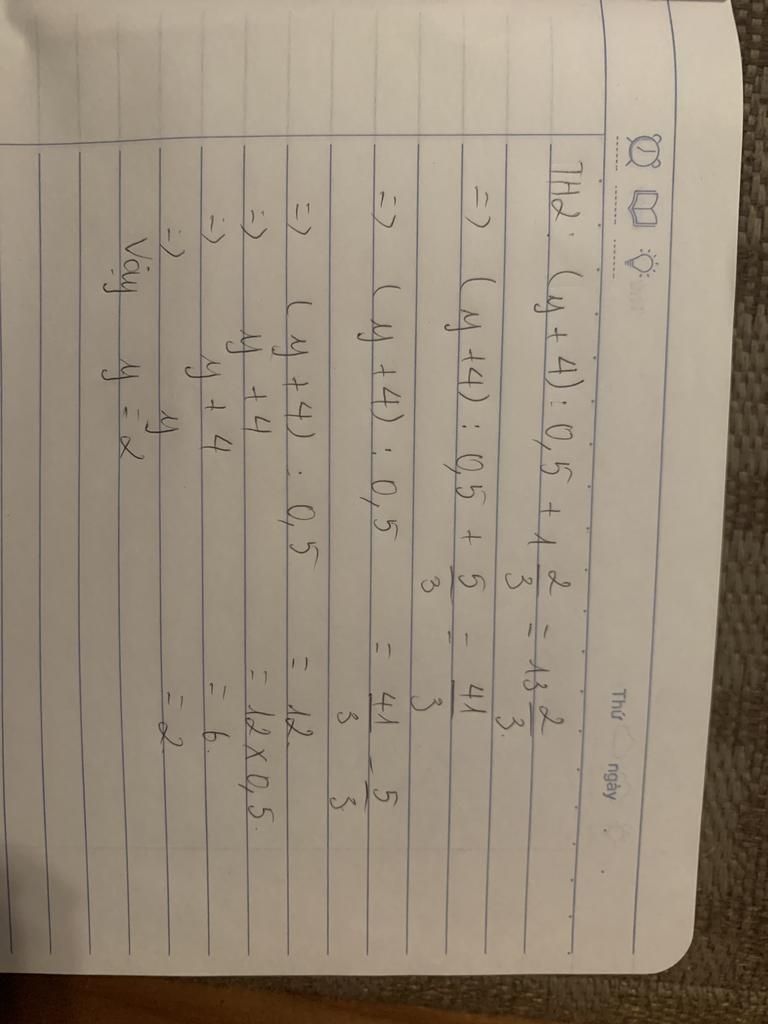 Thứ ngày
TH2: (y + 4) : 0,5 + 1 2/3 = 13 2/3.
=) (y + 4) : 0,5 + 5/3 = 41/3
=) (y + 4) : 0,5 = 41/3 - 5/3
=) (y + 4) : 0,5 = 12.
=) y + 4 = 12 x 0,5.
=) y + 4 = 6.
=) y = 2.
Vậy y = 2